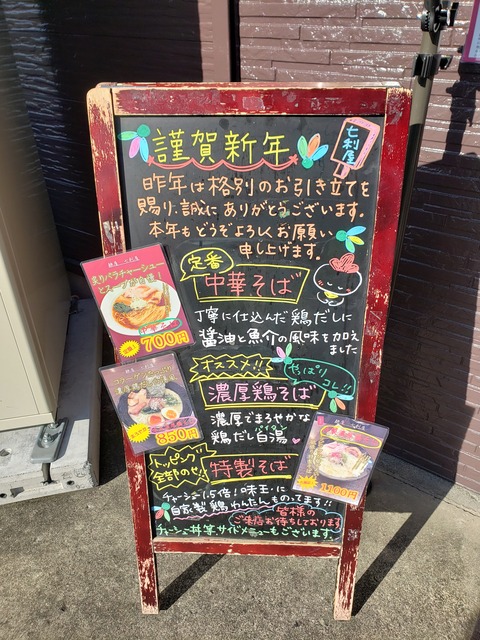 謹賀新年
七利屋
昨年は格別のお引き立てを
賜り、誠にありがとうございます。
本年もどうぞよろしくお願い
申し上げます。
定番
中華そば
丁寧に仕込んだ鶏だしに
醤油と魚介の風味を加え
ました
炙りバラチャーシュー
とスープが自慢！
中華そば
700円
オススメ!!
やっぱり
コレ!!
濃厚鶏そば
濃厚でまろやかな
鶏だし白湯
パイタン
850円
トッピング
全部のせ!!
特製そば
チャーシュー1.5倍！味玉に
自家製鶏わんたんものってます!!
1100円
皆様の
ご来店お待ちしております
チャーシュー丼等サイドメニューもございます。